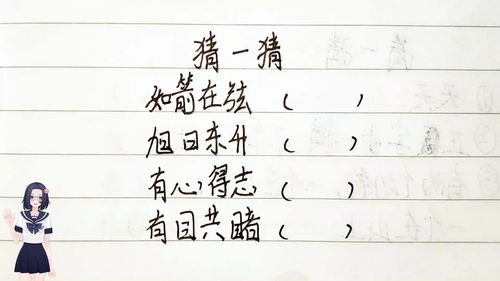 猜一猜
如箭在弦（ ）
旭日东升（ ）
有心得志（ ）
有目共睹（ ）